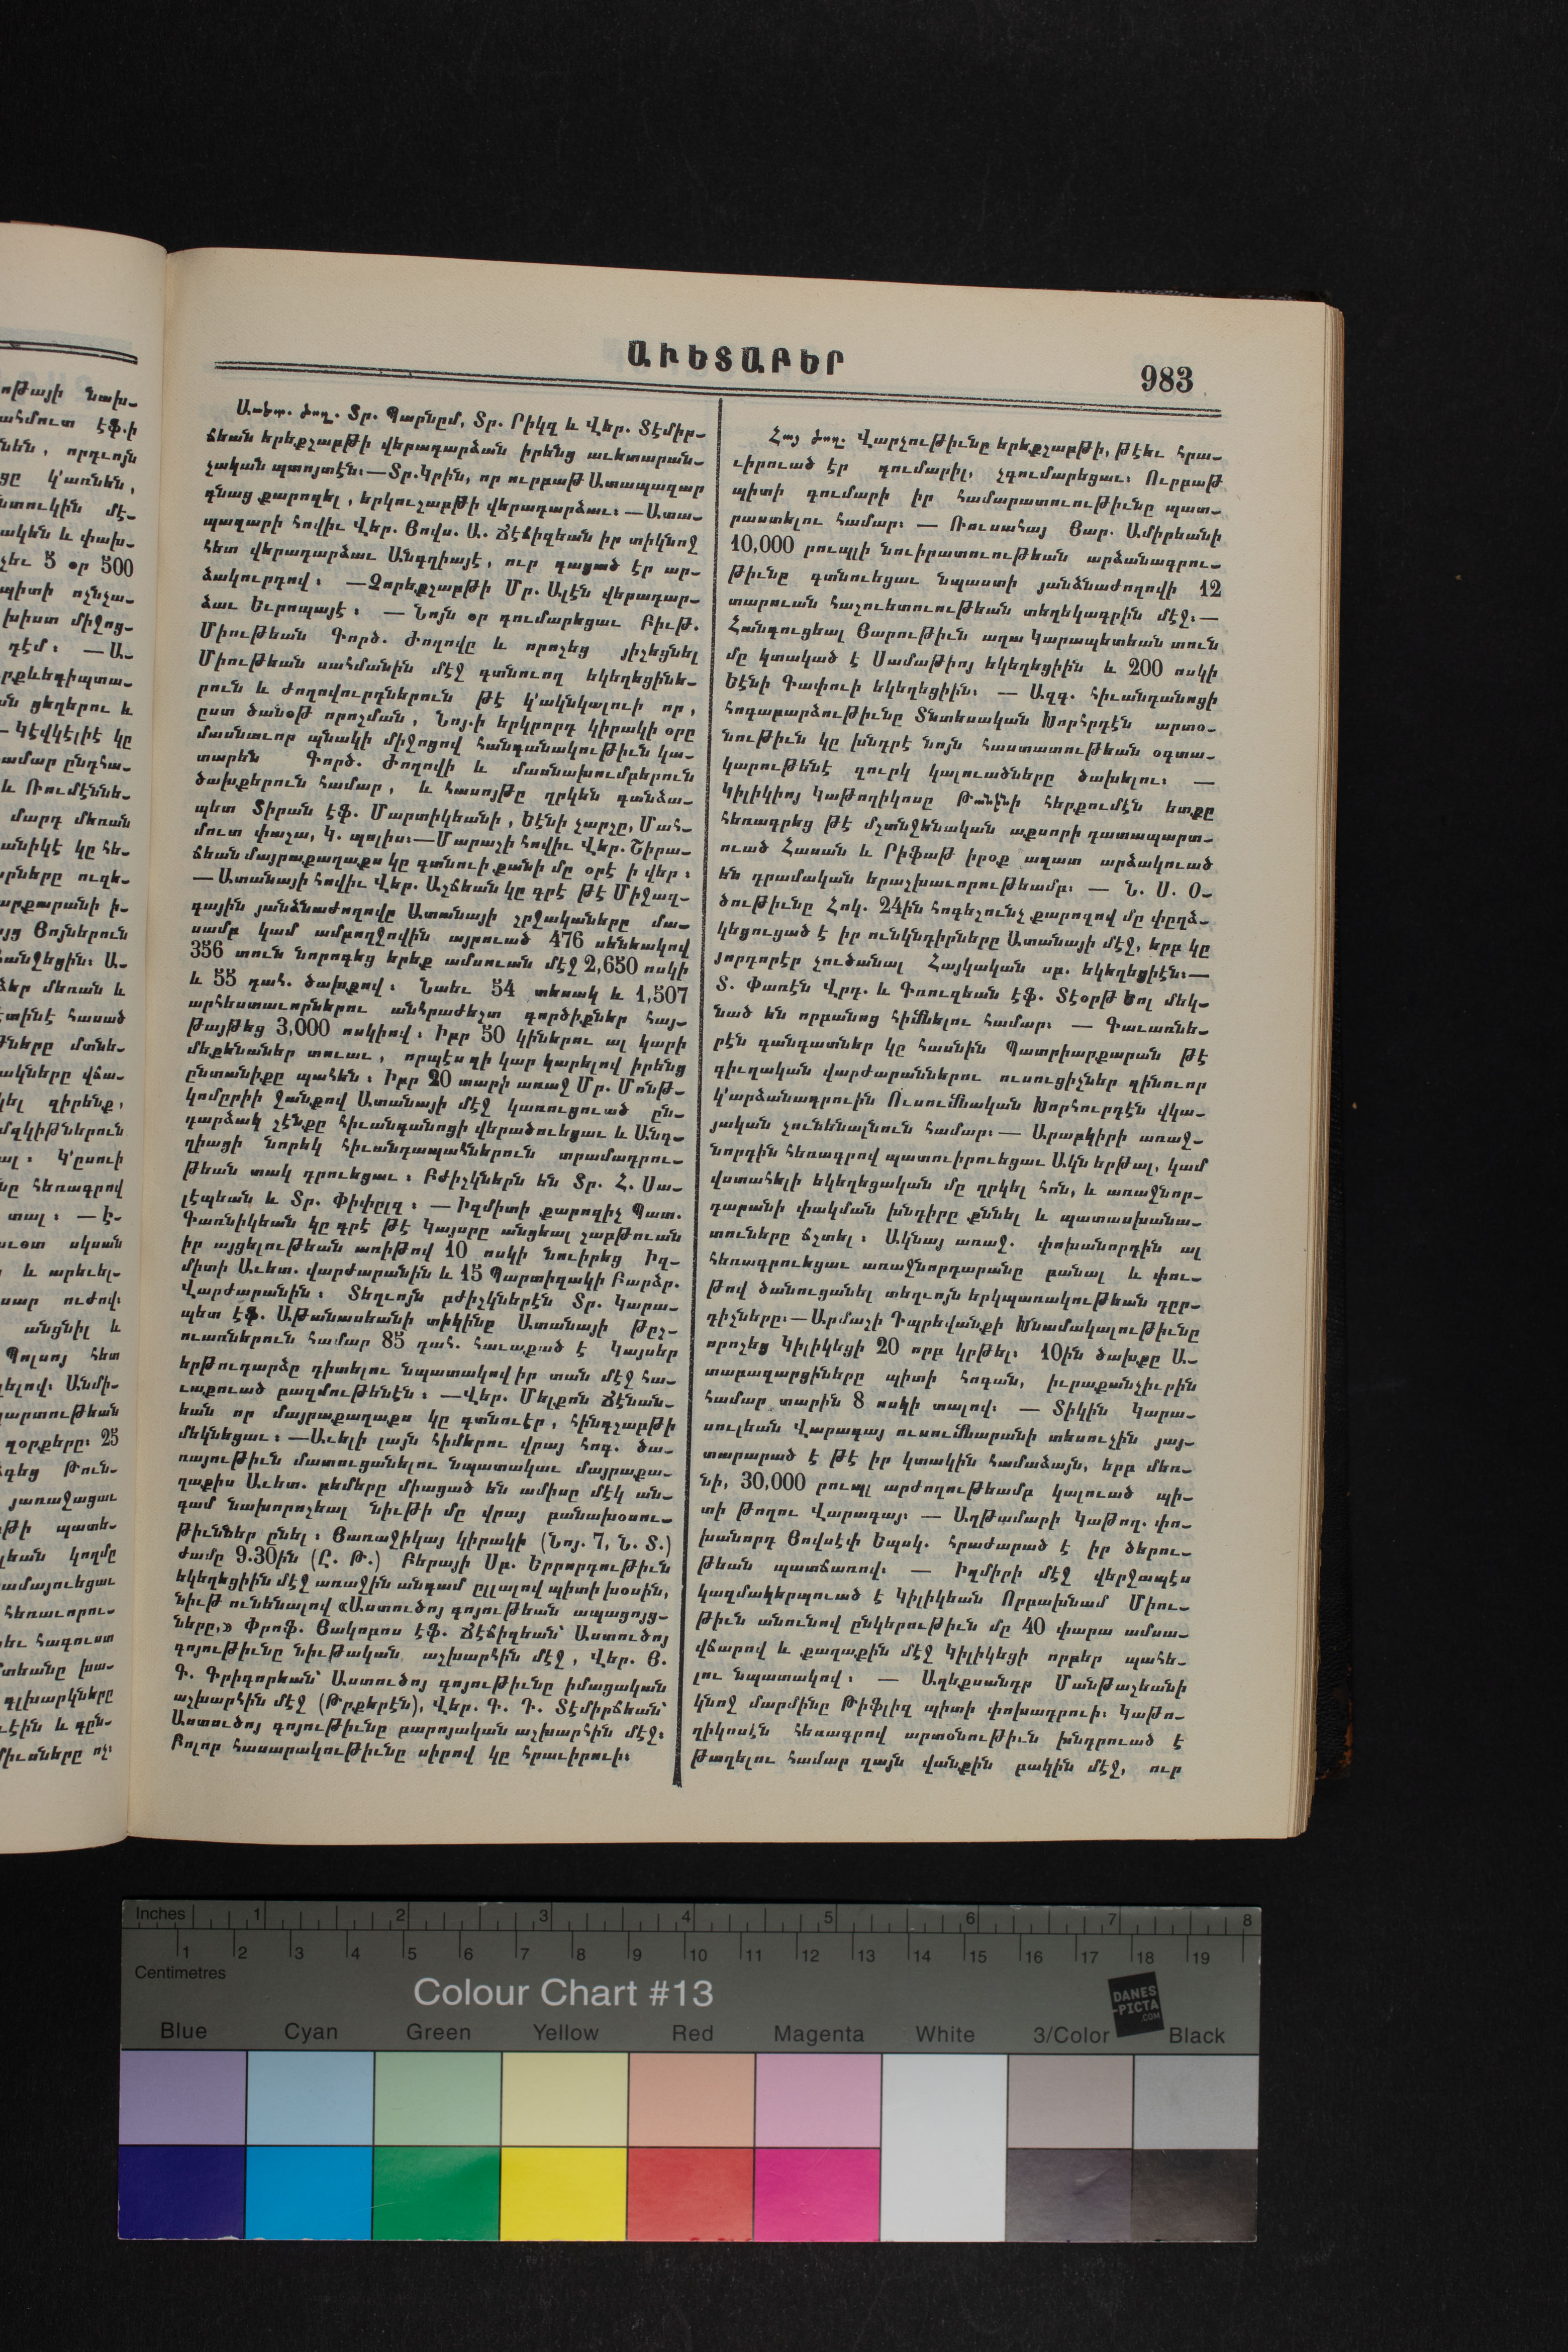 ԱՒԵՏԱԲԵՐ
983
Աւետ. ժող. Տր. Պարնըմ, Տր. Րիկզ և Վեր. Տէմիր-
ճեան երեքշաբթի վերադարձան իրենց աւետարան-
չական պտոյտէն։—Տր. Կրին, որ ուրբաթ Ատապազար
գնաց քարոզել, երկուշաբթի վերադարձաւ։ —Ատա-
պազարի հովիւ Վեր. Յովս. Ա. Ճէճիզեան իր տիկնոջ
հետ վերադարձաւ Անգղիայէ, ուր գացած էր ար-
ձակուրդով։ —Չորեքշաբթի Մր. Ալէն վերադար-
ձաւ Եւրոպայէ։ — Նոյն օր գումարեցաւ Բիւթ.
Միութեան Գործ. Ժողովը և որոշեց յիշեցնել
Միութեան սահմանին մէջ գտնուող եկեղեցինե-
րուն և ժողովուրդներուն թէ կ'ակնկալուի որ,
ըստ ծանօթ որոշման, Նոյ.ի երկրորդ կիրակի օրը
մասնաւոր պնակի միջոցով հանգանակութիւն կա-
տարեն Գործ. Ժողովի և մասնախումբերուն
ծախքերուն համար, և հասոյթը ղրկեն գանձա-
պետ Տիրան էֆ. Մարտիկեանի, Եէնի չարշը, Մահ-
մուտ փաշա, Կ. պոլիս։—Մարաշի հովիւ Վեր. Շիրա-
ճեան մայրաքաղաքս կը գտնուի քանի մը օրէ ի վեր։
—Ատանայի հովիւ Վեր. Աշճեան կը գրէ թէ Միջազ-
գային յանձնաժողովը Ատանայի շրջակաները մա-
սամբ կամ ամբողջովին այրուած 476 սենեակով
356 տուն նորոգեց երեք ամսուան մէջ 2,650 ոսկի
և 55 դահ. ծախքով։ Նաեւ 54 տեսակ և 1,507
արհեստաւորներու անհրաժեշտ գործիքներ հայ-
թայթեց 3,000 ոսկիով։ Իբր 50 կիներու ալ կարի
մեքենաներ տուաւ, որպէս զի կար կարելով իրենց
ընտանիքը պահեն։ Իբր 20 տարի առաջ Մր. Մոնթ-
կոմըրիի ջանքով Ատանայի մէջ կառուցուած ըն-
դարձակ շէնքը հիւանդանոցի վերածուեցաւ և Անգ-
ղիացի նորեկ հիւանդապահներուն տրամադրու-
թեան տակ դրուեցաւ։ Բժիշկներն են Տր. Հ. Սա-
լէպեան և Տր. Փիփըլզ։ — Իզմիտի քարոզիչ Պատ.
Գառնիկեան կը գրէ թէ Կայսրը անցեալ շաբթուան
իր այցելութեան առիթով 10 ոսկի նուիրեց Իզ-
միտի Աւետ. վարժարանին և 15 Պարտիզակի Բարձր.
Վարժարանին։ Տեղւոյն բժիշկներէն Տր. Կարա-
պետ էֆ. Աթանասեանի տիկինը Ատանայի թըշ-
ուառներուն համար 85 դահ. հաւաքած է Կայսեր
երթուդարձը դիտելու նպատակով իր տան մէջ հա-
ւաքուած բազմութենէն։ —Վեր. Մելքոն Ճէնան-
եան որ մայրաքաղաքս կը գտնուէր, հինգշաբթի
մեկնեցաւ։ —Աւելի լայն հիմերու վրայ հոգ. ծա-
ռայութիւն մատուցանելու նպատակաւ մայրաքա-
ղաքիս Աւետ. բեմերը միացած են ամիսը մէկ ան-
գամ նախորոշեալ նիւթի մը վրայ բանախօսու-
թիւններ ընել։ Յառաջիկայ կիրակի (Նոյ. 7, Ն. Տ.)
ժամը 9.30ին (Ը. Թ.) Բերայի Սբ. Երրորդութիւն
եկեղեցիին մէջ առաջին անգամ ըլլալով պիտի խօսին,
նիւթ ունենալով «Աստուծոյ գոյութեան ապացոյց-
ները,» Փրոֆ. Յակոբոս էֆ. Ճէճիզեան՝ Աստուծոյ
գոյութիւնը նիւթական աշխարհին մէջ, Վեր. Յ.
Գ. Գրիգորեան՝ Աստուծոյ գոյութիւնը իմացական
աշխարհին մէջ (Թրքերէն), Վեր. Գ. Դ. Տէմիրճեան՝
Աստուծոյ գոյութիւնը բարոյական աշխարհին մէջ։
Բոլոր հասարակութիւնը սիրով կը հրաւիրուի։
Հայ ժող. Վարչութիւնը երեքշաբթի, թէեւ հրա-
ւիրուած էր գումարիլ, չգումարեցաւ։ Ուրբաթ
պիտի գումարի իր համարատուութիւնը պատ-
րաստելու համար։ — Ռուսահայ Յար. Ամիրեանի
10,000 րուպլի նուիրատուութեան արձանագրու-
թիւնը գտնուեցաւ նպաստի յանձնաժողովի 12
տարուան հաշուետուութեան տեղեկագրին մէջ։—
Հանգուցեալ Յարութիւն աղա Կարապետեան տուն
մը կտակած է Սամաթիոյ եկեղեցիին և 200 ոսկի
Եէնի Գափուի եկեղեցիին։ — Ազգ. հիւանդանոցի
հոգաբարձութիւնը Տնտեսական Խորհրդէն արտօ-
նութիւն կը խնդրէ նոյն հաստատութեան օգտա-
կարութենէ զուրկ կալուածները ծախելու։ —
Կիլիկիոյ Կաթողիկոսը Թանինի հերքումէն ետքը
հեռագրեց թէ մշտնջենական աքսորի դատապարտ-
ուած Հասան և Րիֆաթ իրօք ազատ արձակուած
են դրամական երաշխաւորութեամբ։ — Ն. Ս. Օ-
ծութիւնը Հոկ. 24ին հոգեշունչ քարոզով մը փըղձ-
կեցուցած է իր ունկնդիրները Ատանայի մէջ, երբ կը
յորդորէր չուծանալ Հայկական սբ. եկեղեցիէն։—
Տ. Փառէն Վրդ. և Գռուզեան էֆ. Տէօրթ Եոլ մեկ-
նած են որբանոց հիմնելու համար։ — Գաւառնե-
րէն գանգատներ կը հասնին Պատրիարքարան թէ
գիւղական վարժարաններու ուսուցիչներ զինուոր
կ'արձանագրուին Ուսումնական Խորհուրդէն վկա-
յական չունենալնուն համար։— Արաբկիրի առաջ-
նորդին հեռագրով պատուիրուեցաւ Ակն երթալ, կամ
վստահելի եկեղեցական մը ղրկել հոն, և առաջնոր-
դարանի փակման խնդիրը քննել և պատասխանա-
տուները ճշտել։ Ակնայ առաջ. փոխանորդին ալ
հեռագրուեցաւ առաջնորդարանը բանալ և փու-
թով ծանուցանել տեղւոյն երկպառակութեան դըր-
դիչները։—Արմաշի Դպրեվանքի Խնամակալութիւնը
որոշեց Կիլիկեցի 20 որբ կրթել։ 10ին ծախքը Ա-
տաբազարցիները պիտի հոգան, իւրաքանչիւրին
համար տարին 8 ոսկի տալով։ — Տիկին Կարա-
սուլեան Վարագայ ուսումնարանի տեսուչին յայ-
տարարած է թէ իր կտակին համաձայն, երբ մեռ-
նի, 30,000 րուպլ արժողութեամբ կալուած պի-
տի թողու Վարագայ։ — Աղթամարի Կաթող. փո-
խանորդ Յովսէփ Եպսկ. հրաժարած է իր ծերու-
թեան պատճառով։ — Իզմիրի մէջ վերջապէս
կազմակերպուած է Կիլիկեան Որբախնամ Միու-
թիւն անունով ընկերութիւն մը 40 փարա ամսա-
վճարով և քաղաքին մէջ Կիլիկեցի որբեր պահե-
լու նպատակով։ — Աղեքսանդր Մանթաշեանի
կնոջ մարմինը Թիֆլիզ պիտի փոխադրուի։ Կաթո-
ղիկոսէն հեռագրով արտօնութիւն խնդրուած է
թաղելու համար ղայն վանքին բակին մէջ, ուր
Inches 1 2 3 4 5 6 7 8
1 2 3 4 5 6 7 8 9 10 11 12 13 14 15 16 17 18 19
Centimetres
Colour Chart #13
DANES
-PICTA
.COM
Blue Cyan Green Yellow Red Magenta White 3/Color Black